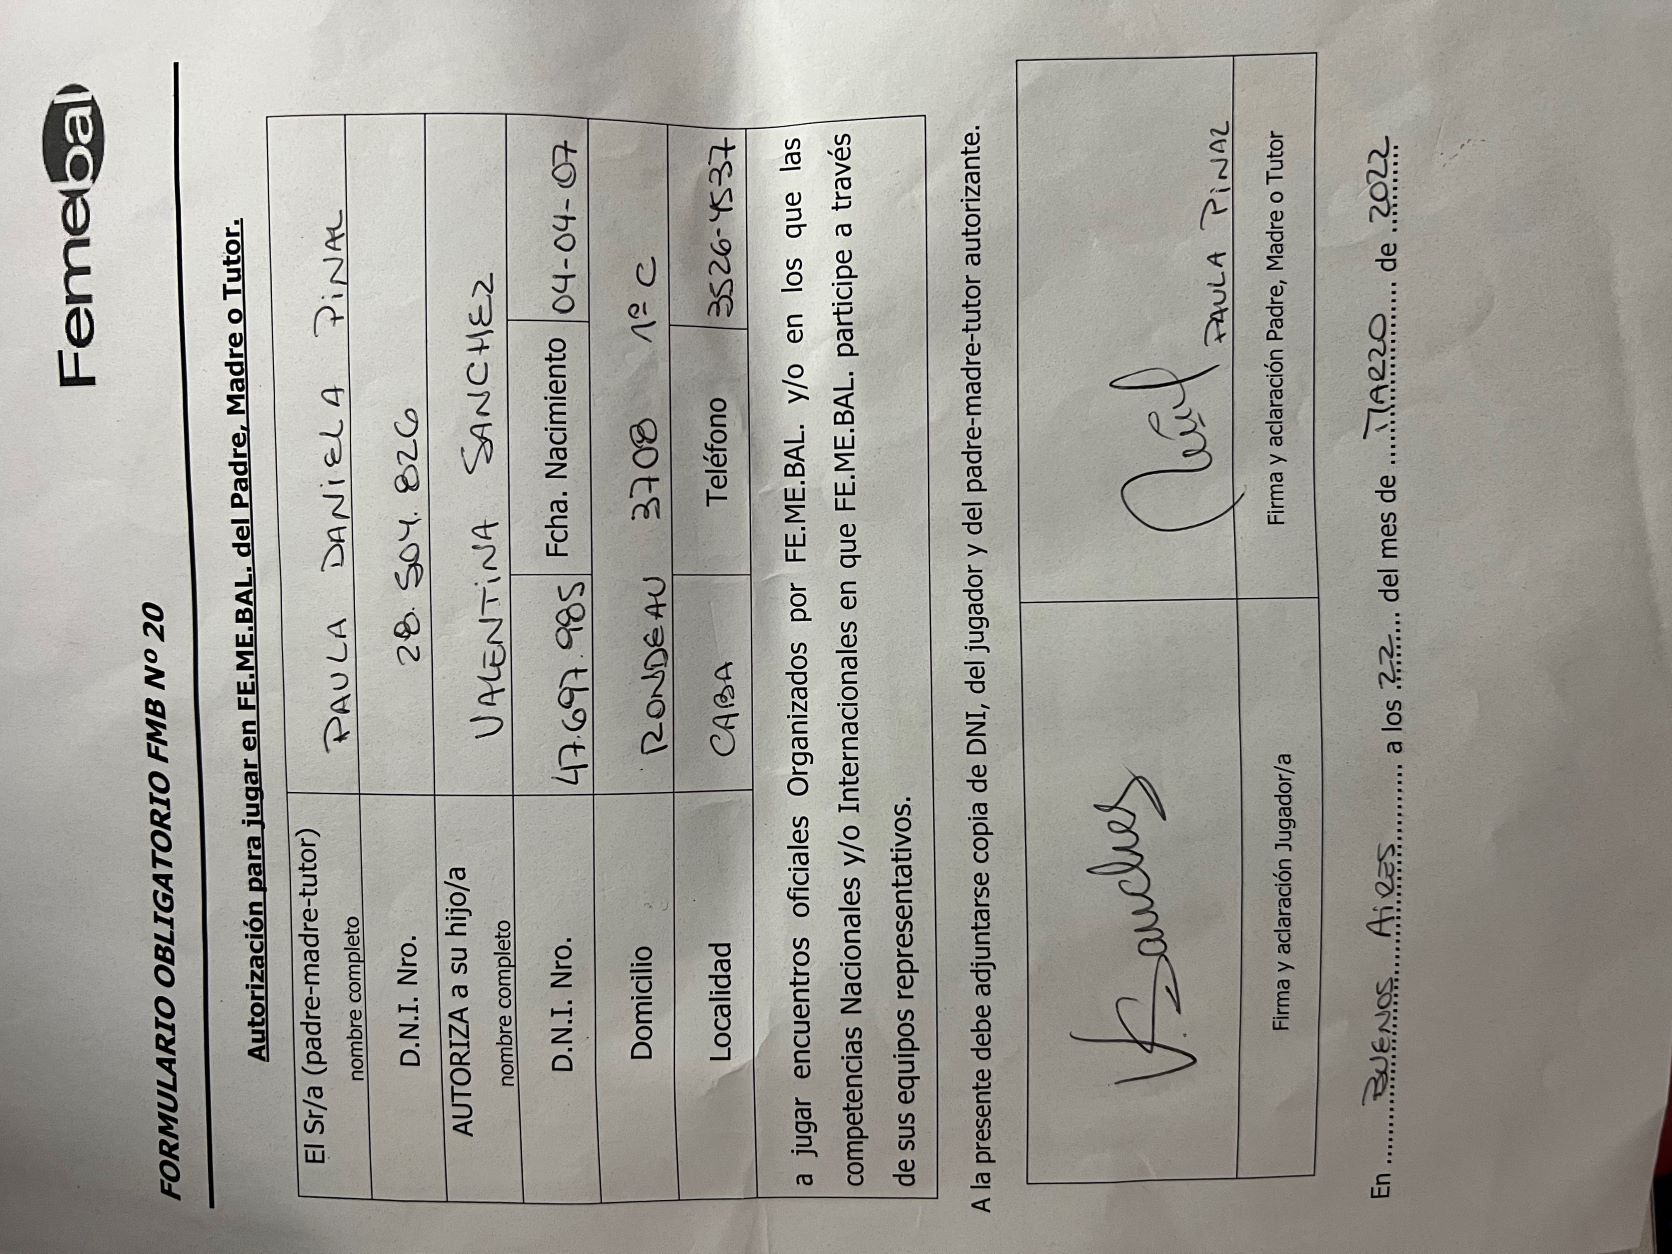 Femebal
FORMULARIO OBLIGATORIO FMB Nº 20
Autorización para jugar en FE.ME.BAL. del Padre, Madre o Tutor.
El Sr/a (padre-madre-tutor) nombre completo PAULA DANIELA PINAL
D.N.I. Nro. 28.504.826
AUTORIZA a su hijo/a nombre completo VALENTINA SANCHEZ
D.N.I. Nro. 47.697.985 Fcha. Nacimiento 04-04-07
Domicilio RONDEAU 3708 1º C
Localidad CABA Teléfono 3526-4537
a jugar encuentros oficiales Organizados por FE.ME.BAL. y/o en los que las
competencias Nacionales y/o Internacionales en que FE.ME.BAL. participe a través
de sus equipos representativos.
A la presente debe adjuntarse copia de DNI, del jugador y del padre-madre-tutor autorizante.
V.Sanchez
PAULA PINAL
Firma y aclaración Jugador/a Firma y aclaración Padre, Madre o Tutor
En BUENOS AIRES a los 22 del mes de MARZO de 2022